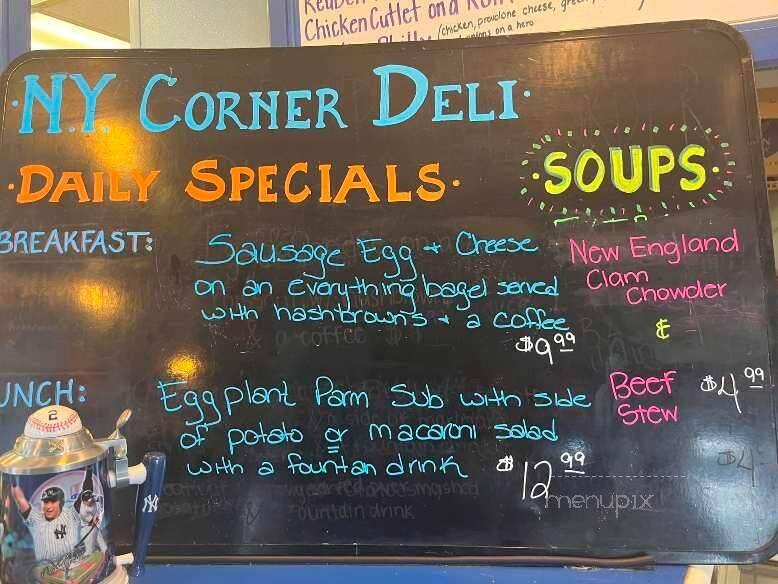 Chicken Cutlet on a
(chicken, provolone cheese,
on a hero
·N.Y. CORNER DELI·
·DAILY SPECIALS·
·SOUPS·
BREAKFAST:
Sausage Egg + Cheese
on an everything bagel served
with hashbrowns + a coffee
$9.99
New England
Clam
Chowder
&
Beef
Stew
$4.99
UNCH:
Eggplant Parm Sub with side
of potato or macaroni salad
with a fountan drink
$12.99
$4
menupix
fountain drink
2
NY